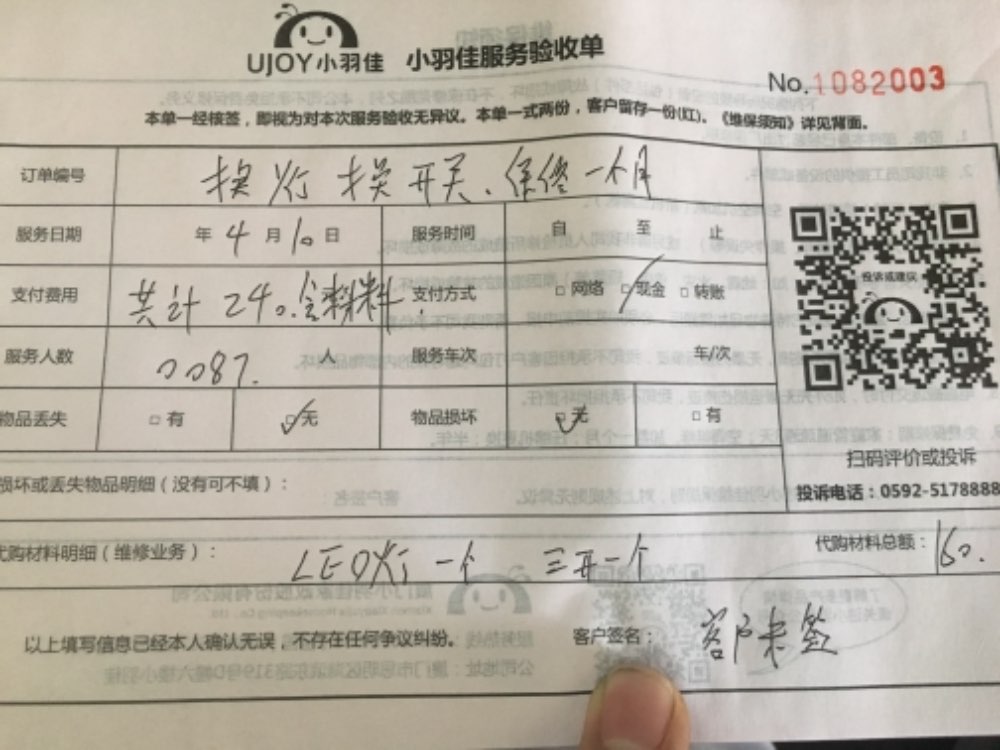 UJOY小羽佳 小羽佳服务验收单
No.1082003
本单一经核签，即视为对本次服务验收无异议。本单一式两份，客户留存一份(红)。《维保须知》详见背面。
订单编号 换灯 换开关、保修一个月
服务日期 年 4 月 10 日 服务时间 自 至 止
支付费用 共计240.含材料. 支付方式 □网络 □现金 □转账
服务人数 0087. 人 服务车次 车/次
物品丢失 □有 □无 物品损坏 □无 □有
投诉或建议
扫码评价或投诉
损坏或丢失物品明细（没有可不填）：
投诉电话：0592-5178888
代购材料明细（维修业务）： LED灯一个 三开一个 代购材料总额： 160.
以上填写信息已经本人确认无误，不存在任何争议纠纷。 客户签名： 客户未签